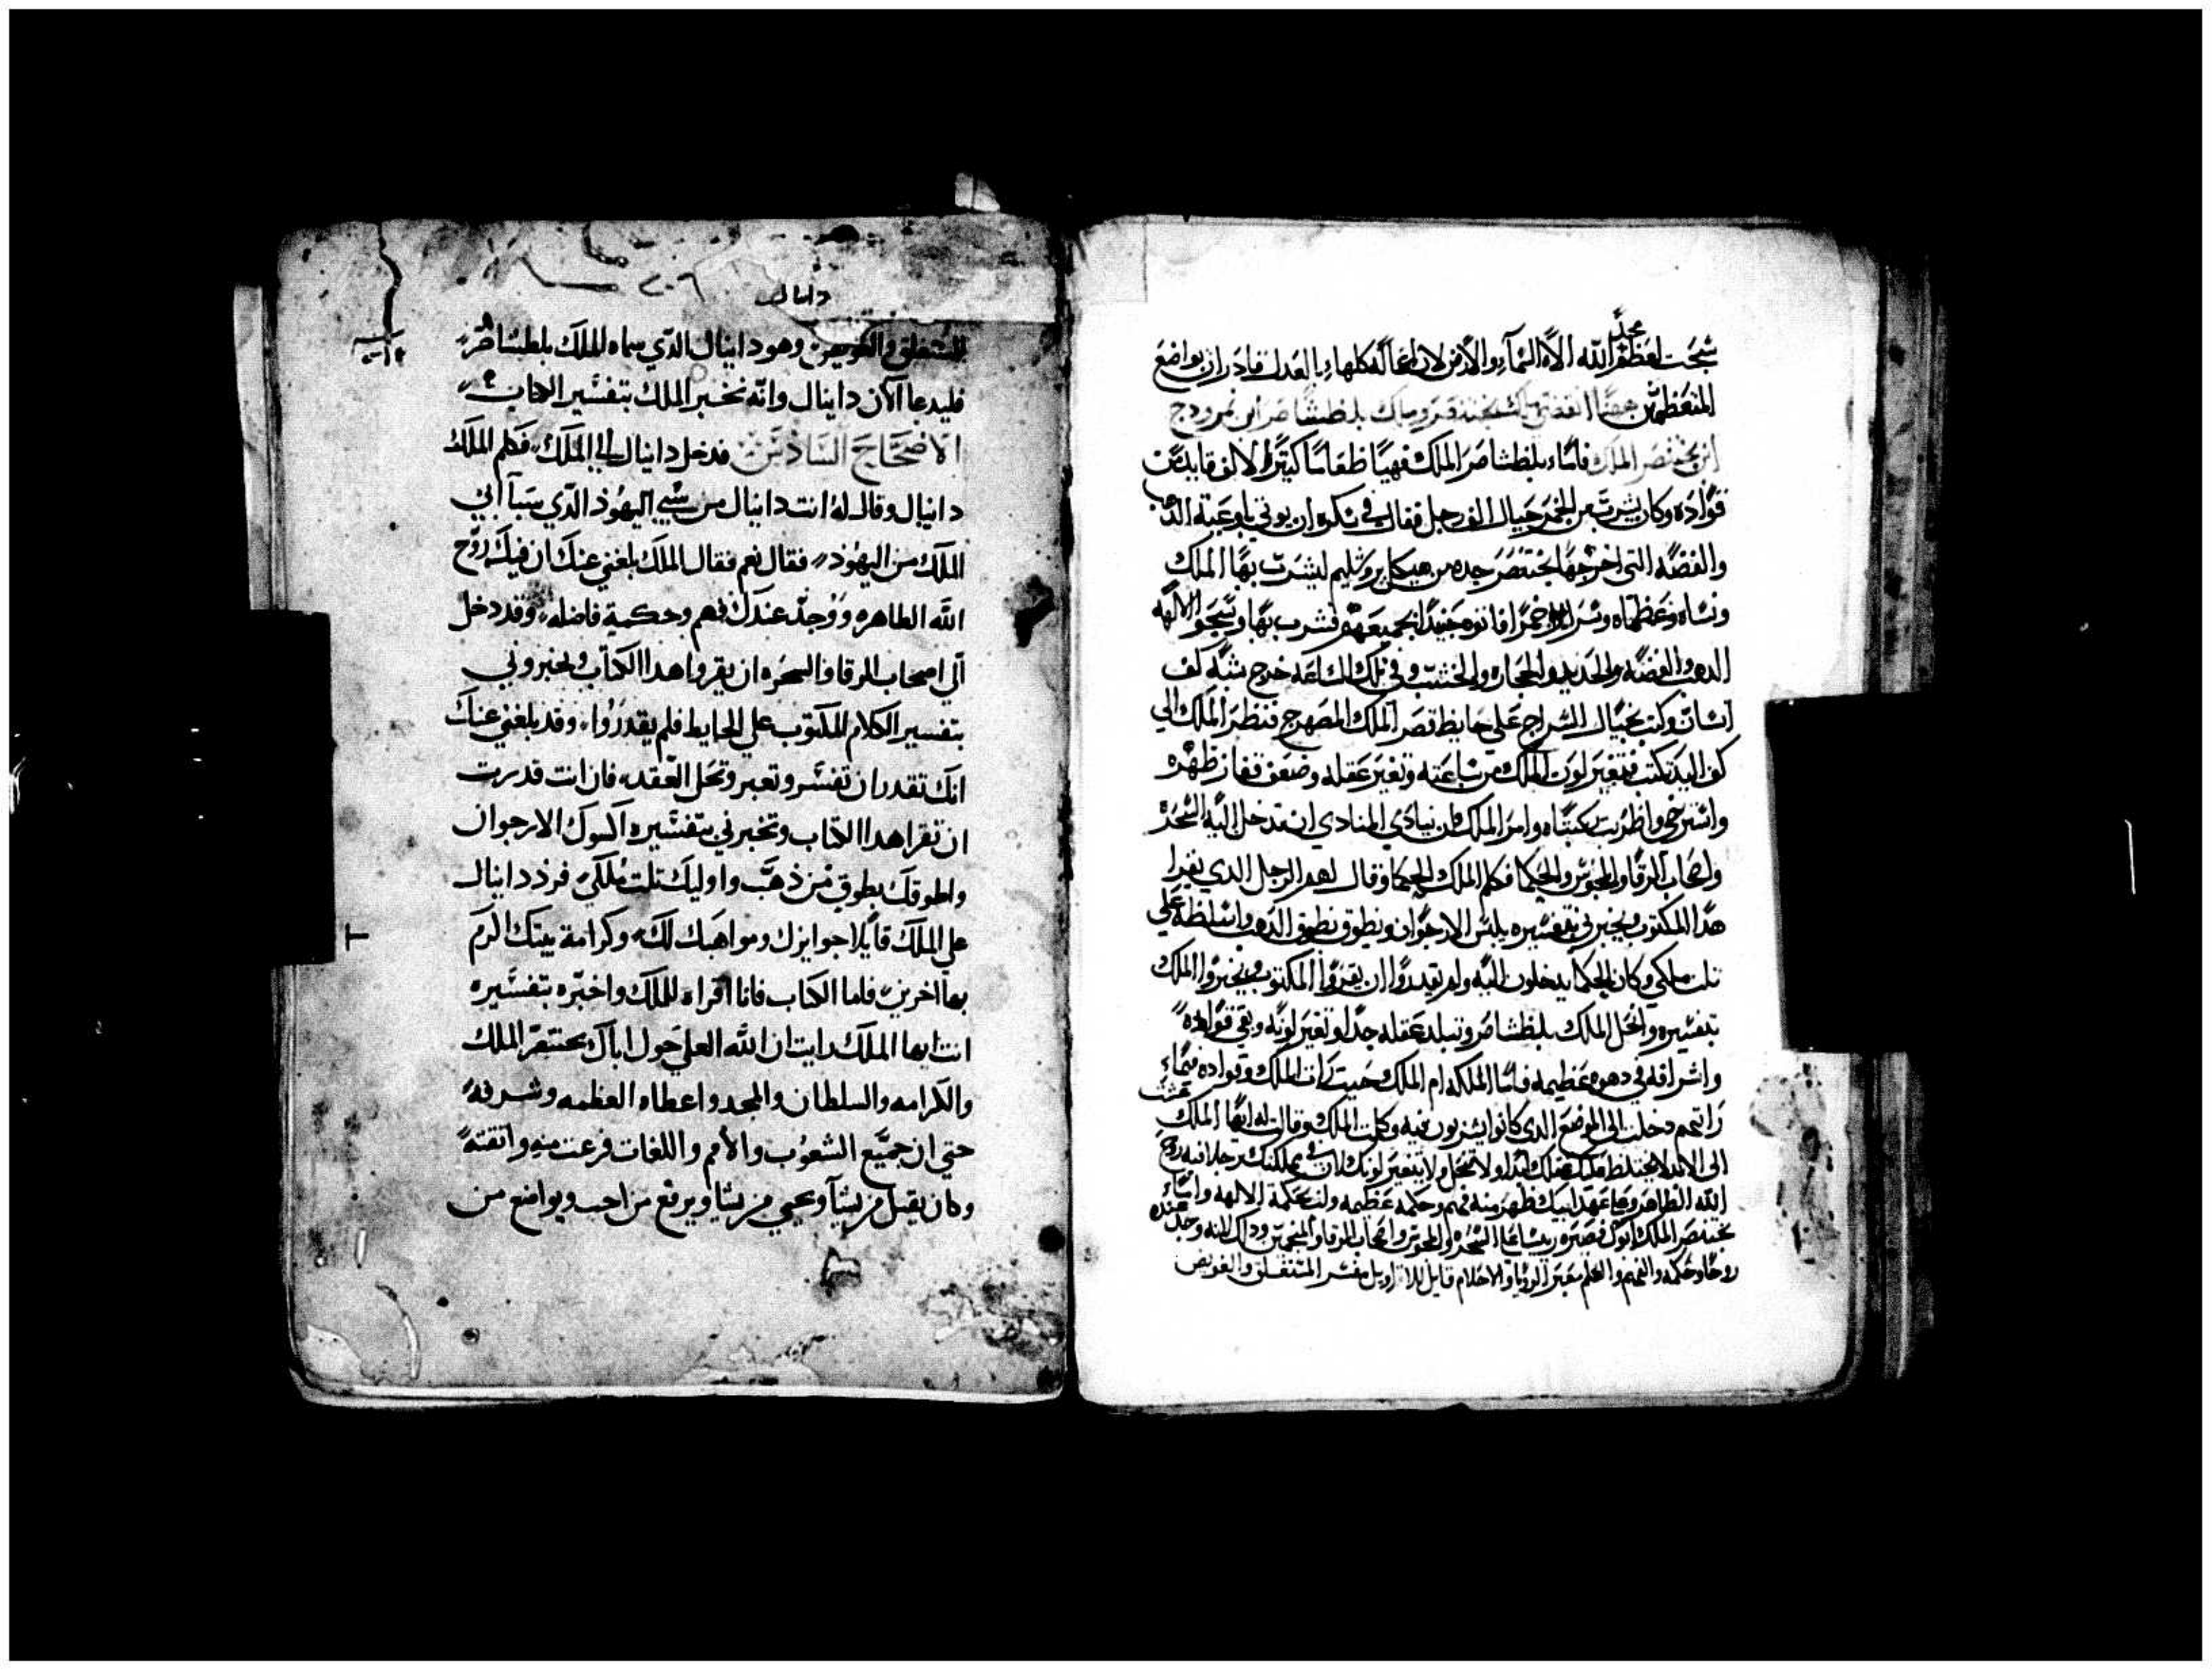 مجد
سبحت لعظم الله الاه السماء والارض لان اعماله كلها بالعدل قادر ان يواضع
المتعظمين بختنصر وملك بلطشاصر ابن نمرودج
ابن بختنصر الملك فاما بلطشاصر الملك فهيا طعاما كبيرا لالف قايد من
قواده وكان يشرب من الخمر حيال الف رجل فقال في سكره ان يوتي باوعية الذهب
والفضه التي اخرجها بختنصر جده من هيكل يروشليم ليشرب بها الملك
ونساه وعظماه فشرب بها وسبحوا الالهه
الدهب والفضه والحديد والحجاره والخشب وفي تلك الساعه خرج شبه كف
انسان وكتب بحيال السراج علي حايط قصر الملك المصهرج فنظر الملك الي
كف اليد تكتب فتغير لون الملك من ساعته وتغير عقله وضعف فقار ظهره
واسترخي واضطربت ركبتاه وامر الملك ان ينادي المنادي ان تدخل اليه السحره
واصحاب الرقا والمجوس والحكما فكلم الملك الحكما وقال لهم الرجل الدي يقرا
هدا المكتوب ويخبرني بتفسيره يلبس الارجوان ويطوق بطوق الدهب واسلطه علي
تلت ملكي وكان الحكما يدخلون اليه ولم يقدروا ان يقروا المكتوب ويخبروا الملك
بتفسيره الملك بلطشاصر وتبلد عقله جدا وتغير لونه وبقي قواده
واشرافه في دهوه عظيمه فاما الملكه ام الملك حيت رات الملك وقواده
دخلت الي الموضع الدي كانوا يشربون فيه وكلمت الملك وقالت له ايها الملك
الي الابد عقلك ابدا ولا يتغير لونك لان في مملكتك رجلا فيه روح
الله الطاهر وفي عهد ابيك ظهر منه فهم وحكمه عظيمه حكمة الالهه وابيك
بختنصر الملك ابوك صيره ريسا علي السحره والمجوس واصحاب الرقا والمنجمين ودلك لانه وجد عنده
روحا وحكمه والفهم والعلم معبر الرويا والاحلام مفسر المتغلق والغويص
دانيال
٢٠٦
المتغلق والغويص وهو دانيال الذي سماه الملك بلطشاصر
فليدعا الان دانيال وانه يخبر الملك بتفسير الكتاب
الاصحاح السادس فدخل دانيال الي الملك فكلم الملك
دانيال وقال له انت دانيال من سبي اليهود الذي سبا ابي
الملك من اليهود فقال نعم فقال الملك بلغني عنك ان فيك روح
الله الطاهره ووجد عندك فهم وحكمة فاضله وقد دخل
الي اصحاب الرقا والسحره ان يقروا هدا الكتاب ويخبروني
بتفسير الكلام المكتوب علي الحايط فلم يقدروا وقد بلغني عنك
انك تقدر ان تفسر وتعبر وتحل العقد فان انت قدرت
ان تقرا هدا الكتاب وتخبرني بتفسيره اكسوك الارجوان
واطوقك بطوق من ذهب واوليك تلت ملكي فرد دانيال
علي الملك قايلا جوايزك ومواهبك لك وكرامة بيتك اكرم
بها اخرين فاما الكتاب فانا اقراه للملك واخبره بتفسيره
انت ايها الملك رايت ان الله العلي خول اباك بختنصر الملك
والكرامه والسلطان والمجد واعطاه العظمه وشرفه
حتي ان جميع الشعوب والامم واللغات فزعت منه واتقته
وكان يقتل من يشا ويحيي من يشا ويرفع من احب ويواضع من